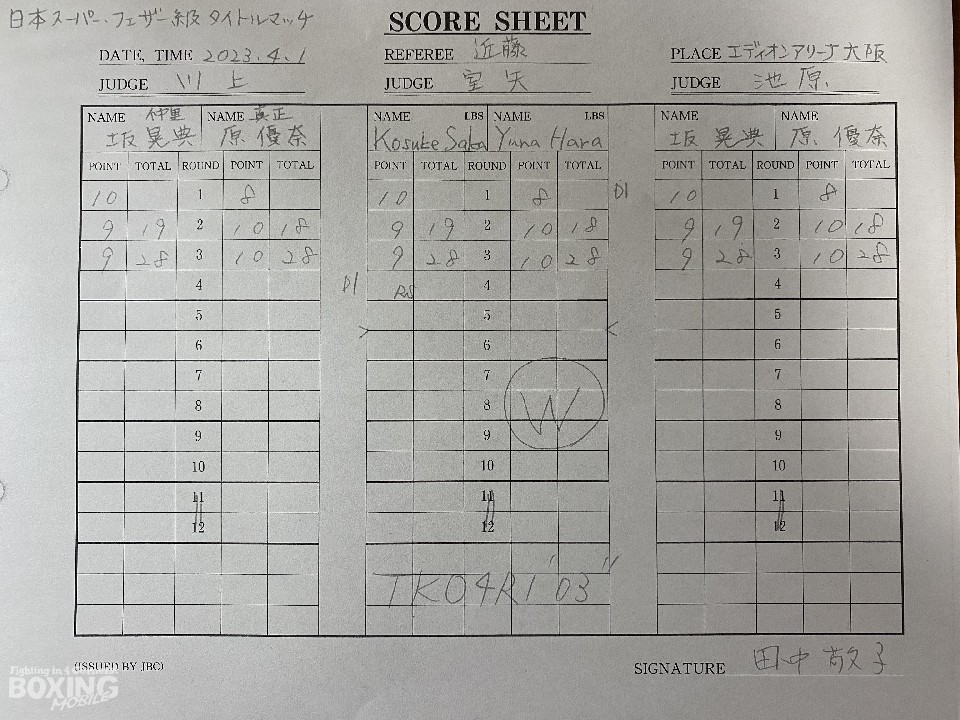 日本スーパー・フェザー級タイトルマッチ
SCORE SHEET
DATE, TIME 2023.4.1 REFEREE 近藤 PLACE エディオンアリーナ大阪
JUDGE 川上 JUDGE 宮矢 JUDGE 池原
NAME 仲里 NAME 真正 NAME LBS NAME LBS NAME NAME
坂晃典 原優奈 Kosuke Saka Yuna Hara 坂晃典 原優奈
POINT TOTAL ROUND POINT TOTAL POINT TOTAL ROUND POINT TOTAL POINT TOTAL ROUND POINT TOTAL
10 1 8 10 1 8 D1 10 1 8
9 19 2 10 18 9 19 2 10 18 9 19 2 10 18
9 28 3 10 28 9 28 3 10 28 9 28 3 10 28
4 D1 RS 4 4
5 5 5
6 > 6 < 6
7 7 7
8 8 W 8
9 9 9
10 10 10
11 11 11
12 12 12
TKO4R1'03"
(ISSUED BY JBC) SIGNATURE 田中敬子
Fighting in 4 Corner
BOXING
MOBILE